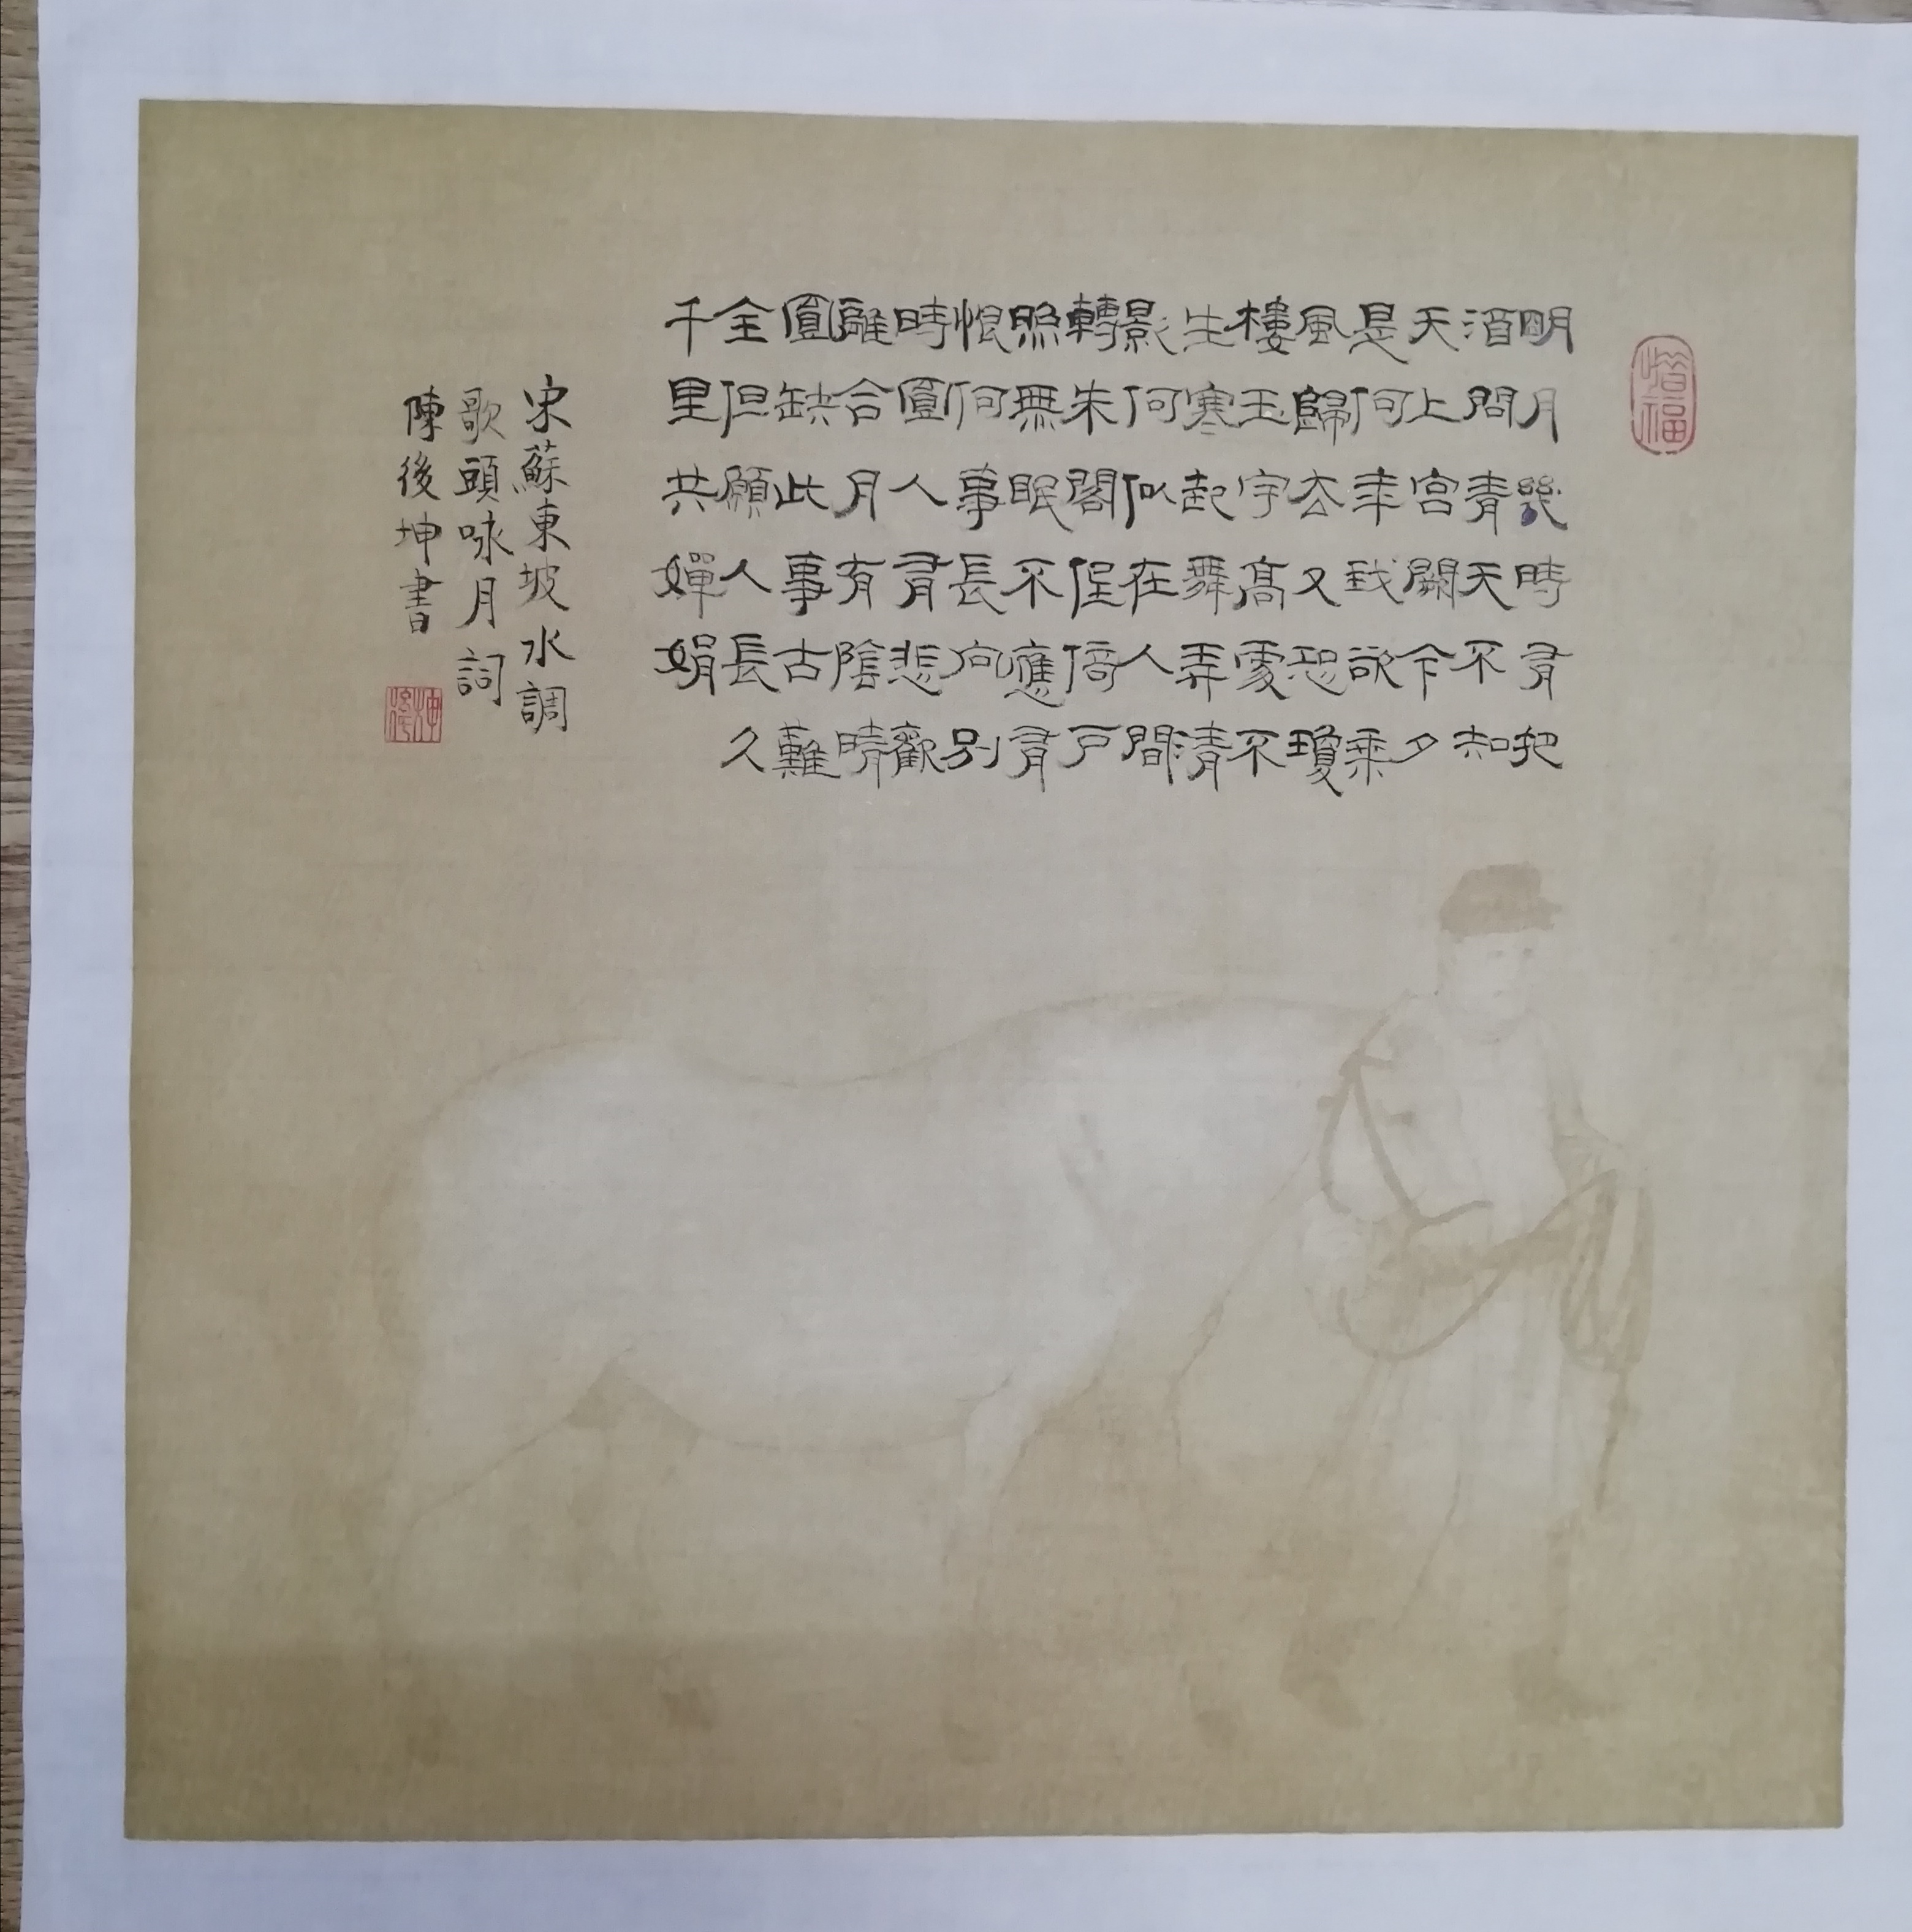 惜福
明月幾時有把
酒問青天不知
天上宮闕今夕
是何年我欲乘
風歸去又恐瓊
樓玉宇高處不
生寒起舞弄清
影何似在人間
轉朱閣低倚戶
照無眠不應有
恨何事長向別
時圓人有悲歡
離合月有陰晴
圓缺此事古難
全但願人長久
千里共嬋娟
宋蘇東坡水調
歌頭咏月詞
陳後坤書
坤後